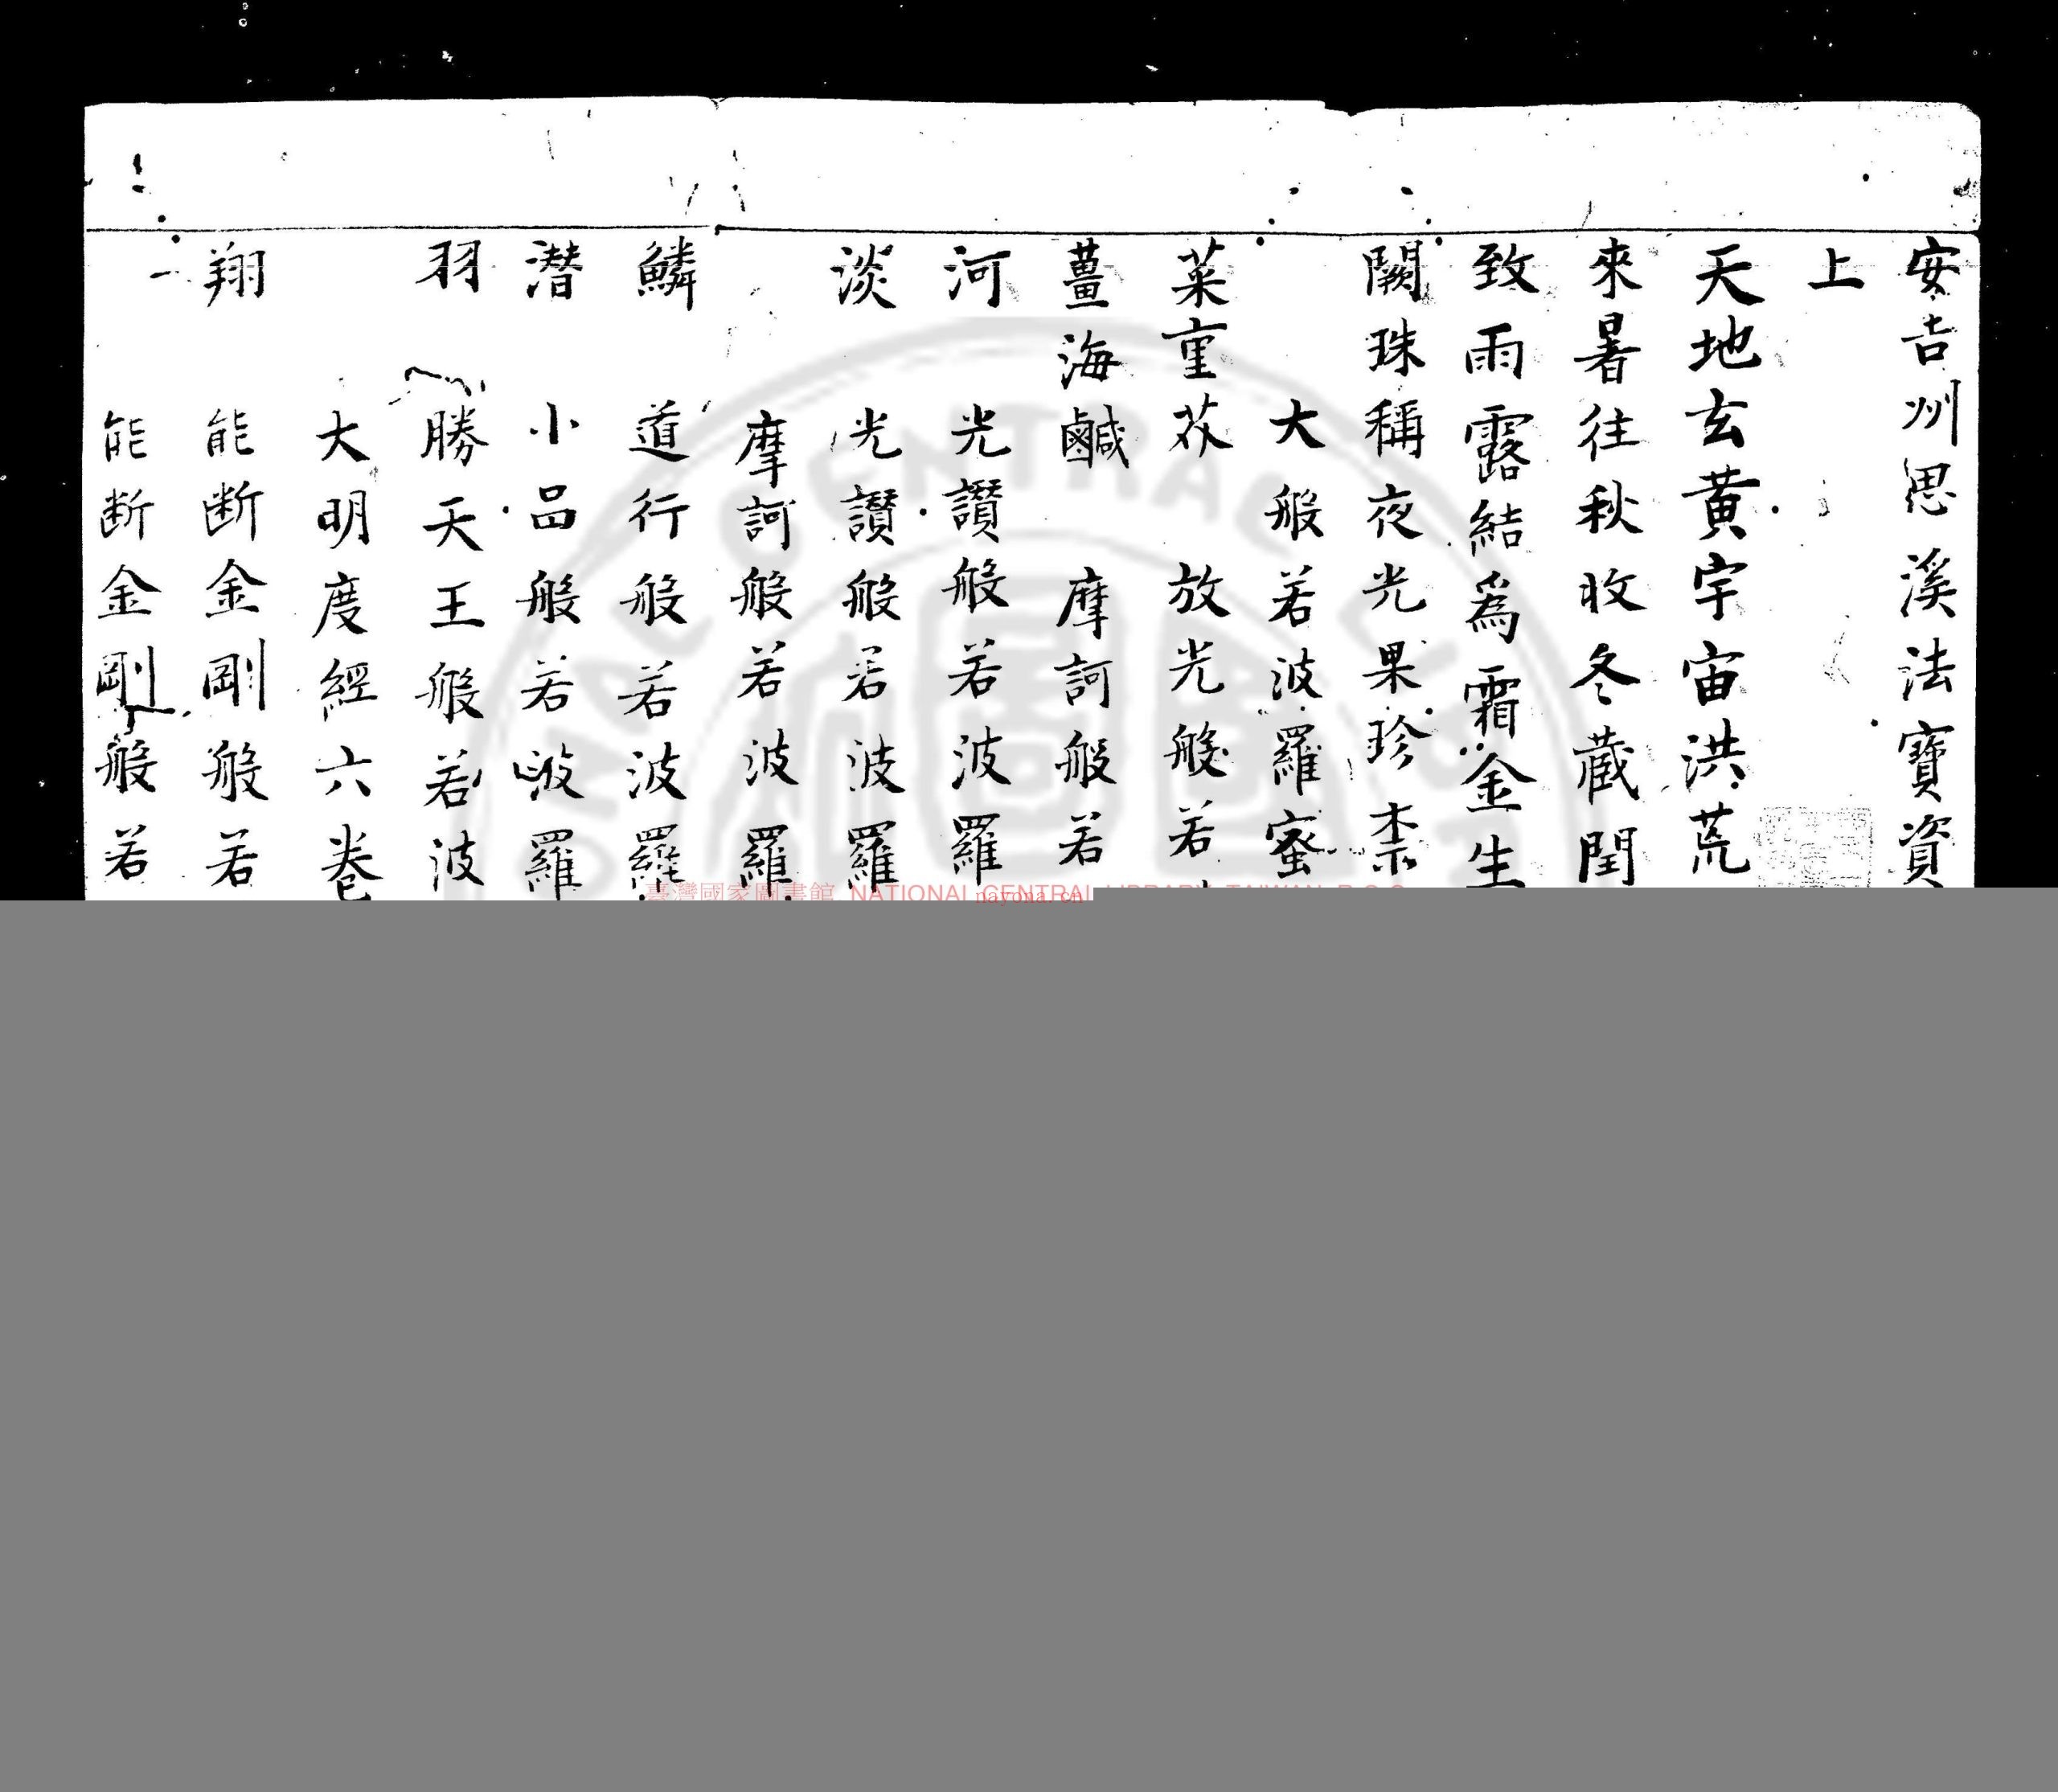 安吉州思溪法寶資
上
天地玄黃宇宙洪荒
來暑往秋收冬藏閏
致雨露結爲霜金生
闕珠稱夜光果珍柰
大般若波羅蜜
菜重芥 放光般若
薑海鹹 摩訶般若
河 光讚般若波羅
淡 光讚般若波羅
摩訶般若波羅
鱗 道行般若波羅
潛 小品般若波羅
羽 勝天王般若波
大明度經六卷
翔 能斷金剛般若
能斷金剛般若
臺灣國家圖書館 NATIONAL CENTRAL LIBRARY, TAIWAN, R.O.C
nayona.cn